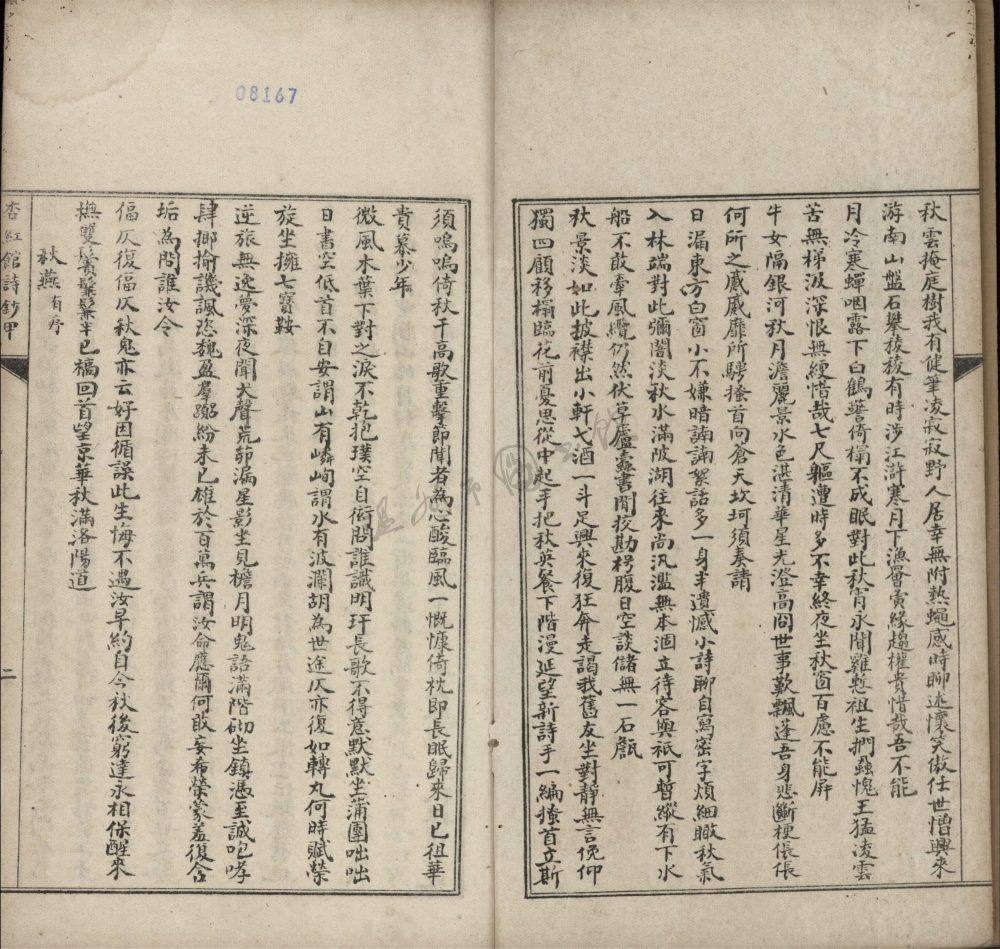 秋雲掩庭樹我有健筆凌寂寂野人居幸無附熱蠅感時聊述懷笑傲任世憎興來
游南山盤石攀稜稜有時涉江滸寒月下漁罾夤緣趨權貴惜哉吾不能
月冷寒蟬咽露下白鶴警倚榻不成眠對此秋宵永聞雞慙祖生捫蝨愧王猛凌雲
苦無梯汲深恨無綆惜哉七尺軀遭時多不幸終夜坐秋窗百慮不能屏
牛女隔銀河秋月澹麗景水色湛清華星光澄高冏世事歎飄蓬吾身悲斷梗倀倀
何所之蹙蹙靡所騁搔首向蒼天坎坷須奏請
日漏東方白窗小不嫌暗諵諵絮話多一身半遺憾小詩聊自寫密字煩細瞰秋氣
入林端對此彌闇淡秋水滿陂湖往來尚汎濫無本涸立待容與祇可暫縱有下水
船不敢牽風纜仍然伏草廬蠹書閒挍勘枵腹日空談儲無一石甔
秋景淡如此披襟出小軒弋酒一斗足興來復狂奔走謁我舊友坐對靜無言俛仰
獨四顧移榻臨花前憂思從中起手把秋英餐下階漫延望新詩手一編搔首立斯
須嗚嗚倚秋干高歌重擊節聞者為心酸臨風一慨慷倚枕即長眠歸來日已徂華
貴慕少年
微風木葉下對之淚不乾抱璞空自衒問誰識明玕長歌不得意默默坐蒲團咄咄
日書空低首不自安謂山有嶙峋謂水有波瀾胡為世途仄亦復如轉丸何時賦榮
旋坐擁七寶鞍
逆旅無逸夢深夜聞犬聲荒茆漏星影坐見檐月明鬼語滿階砌坐鎮憑至誠咆哮
肆揶揄譏諷恣魏盈羣溺紛未已雄於百萬兵謂汝命應爾何敢妄希榮蒙羞復含
垢為問誰汝令
偪仄復偪仄秋鬼亦云好因循誤此生悔不遇汝早約自今秋後窮達永相保醒來
撫雙鬢鬢鬆半已槁回首望京華秋滿洛陽道
秋燕有序
杏紅館詩鈔甲
二
08167